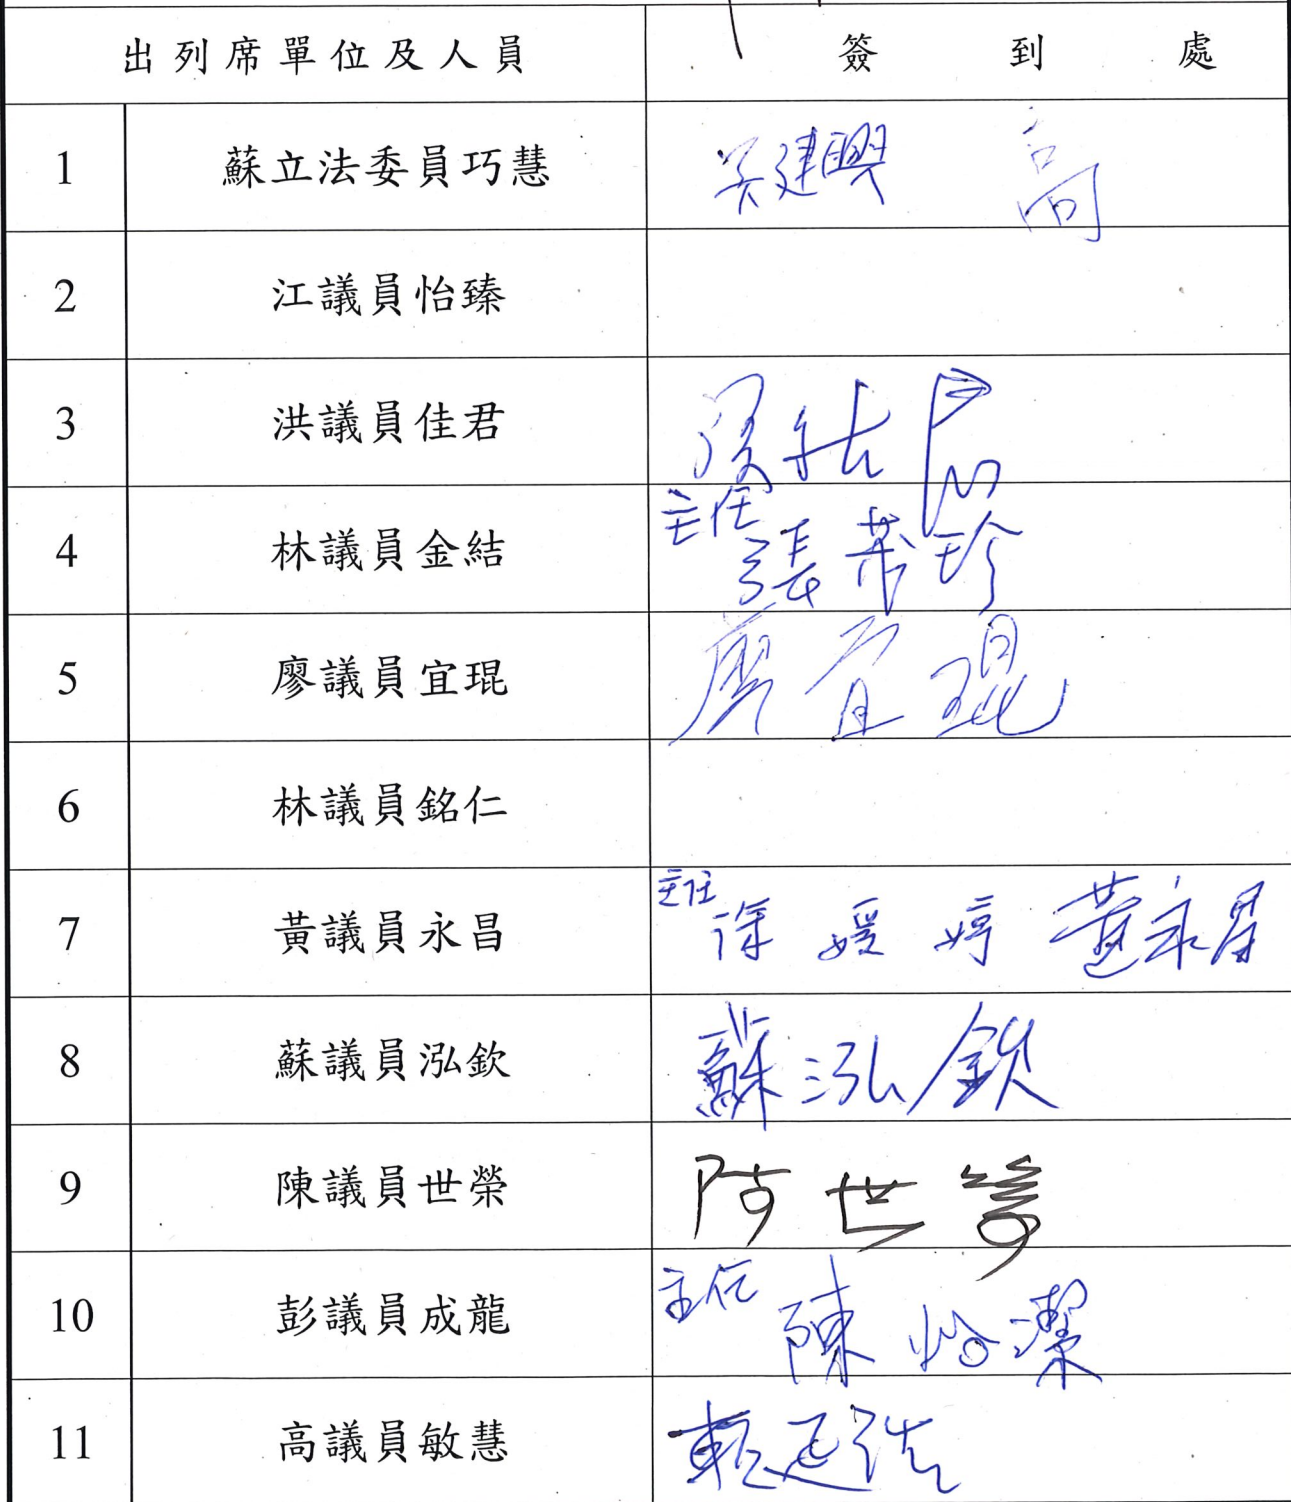 出列席單位及人員 簽到處
1 蘇立法委員巧慧 吳建興 高
2 江議員怡臻
3 洪議員佳君
4 林議員金結 主任 張芾珍
5 廖議員宜琨 廖宜琨
6 林議員銘仁
7 黃議員永昌 主任 徐媛婷 黃永昌
8 蘇議員泓欽 蘇泓欽
9 陳議員世榮 陳世榮
10 彭議員成龍 主任 陳怡潔
11 高議員敏慧